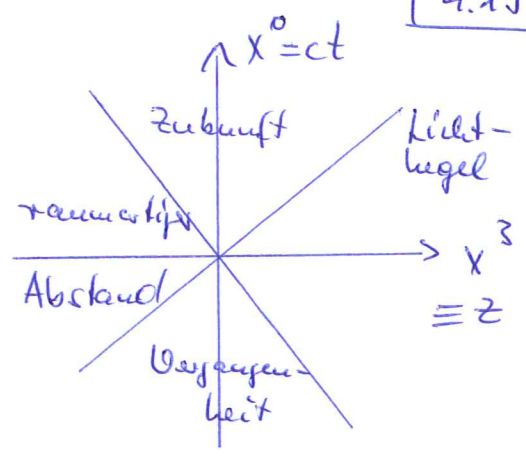 x⁰=ct
Zukunft
Licht-
kegel
raumartiger
Abstand
x³
≡ z
Vergangen-
heit